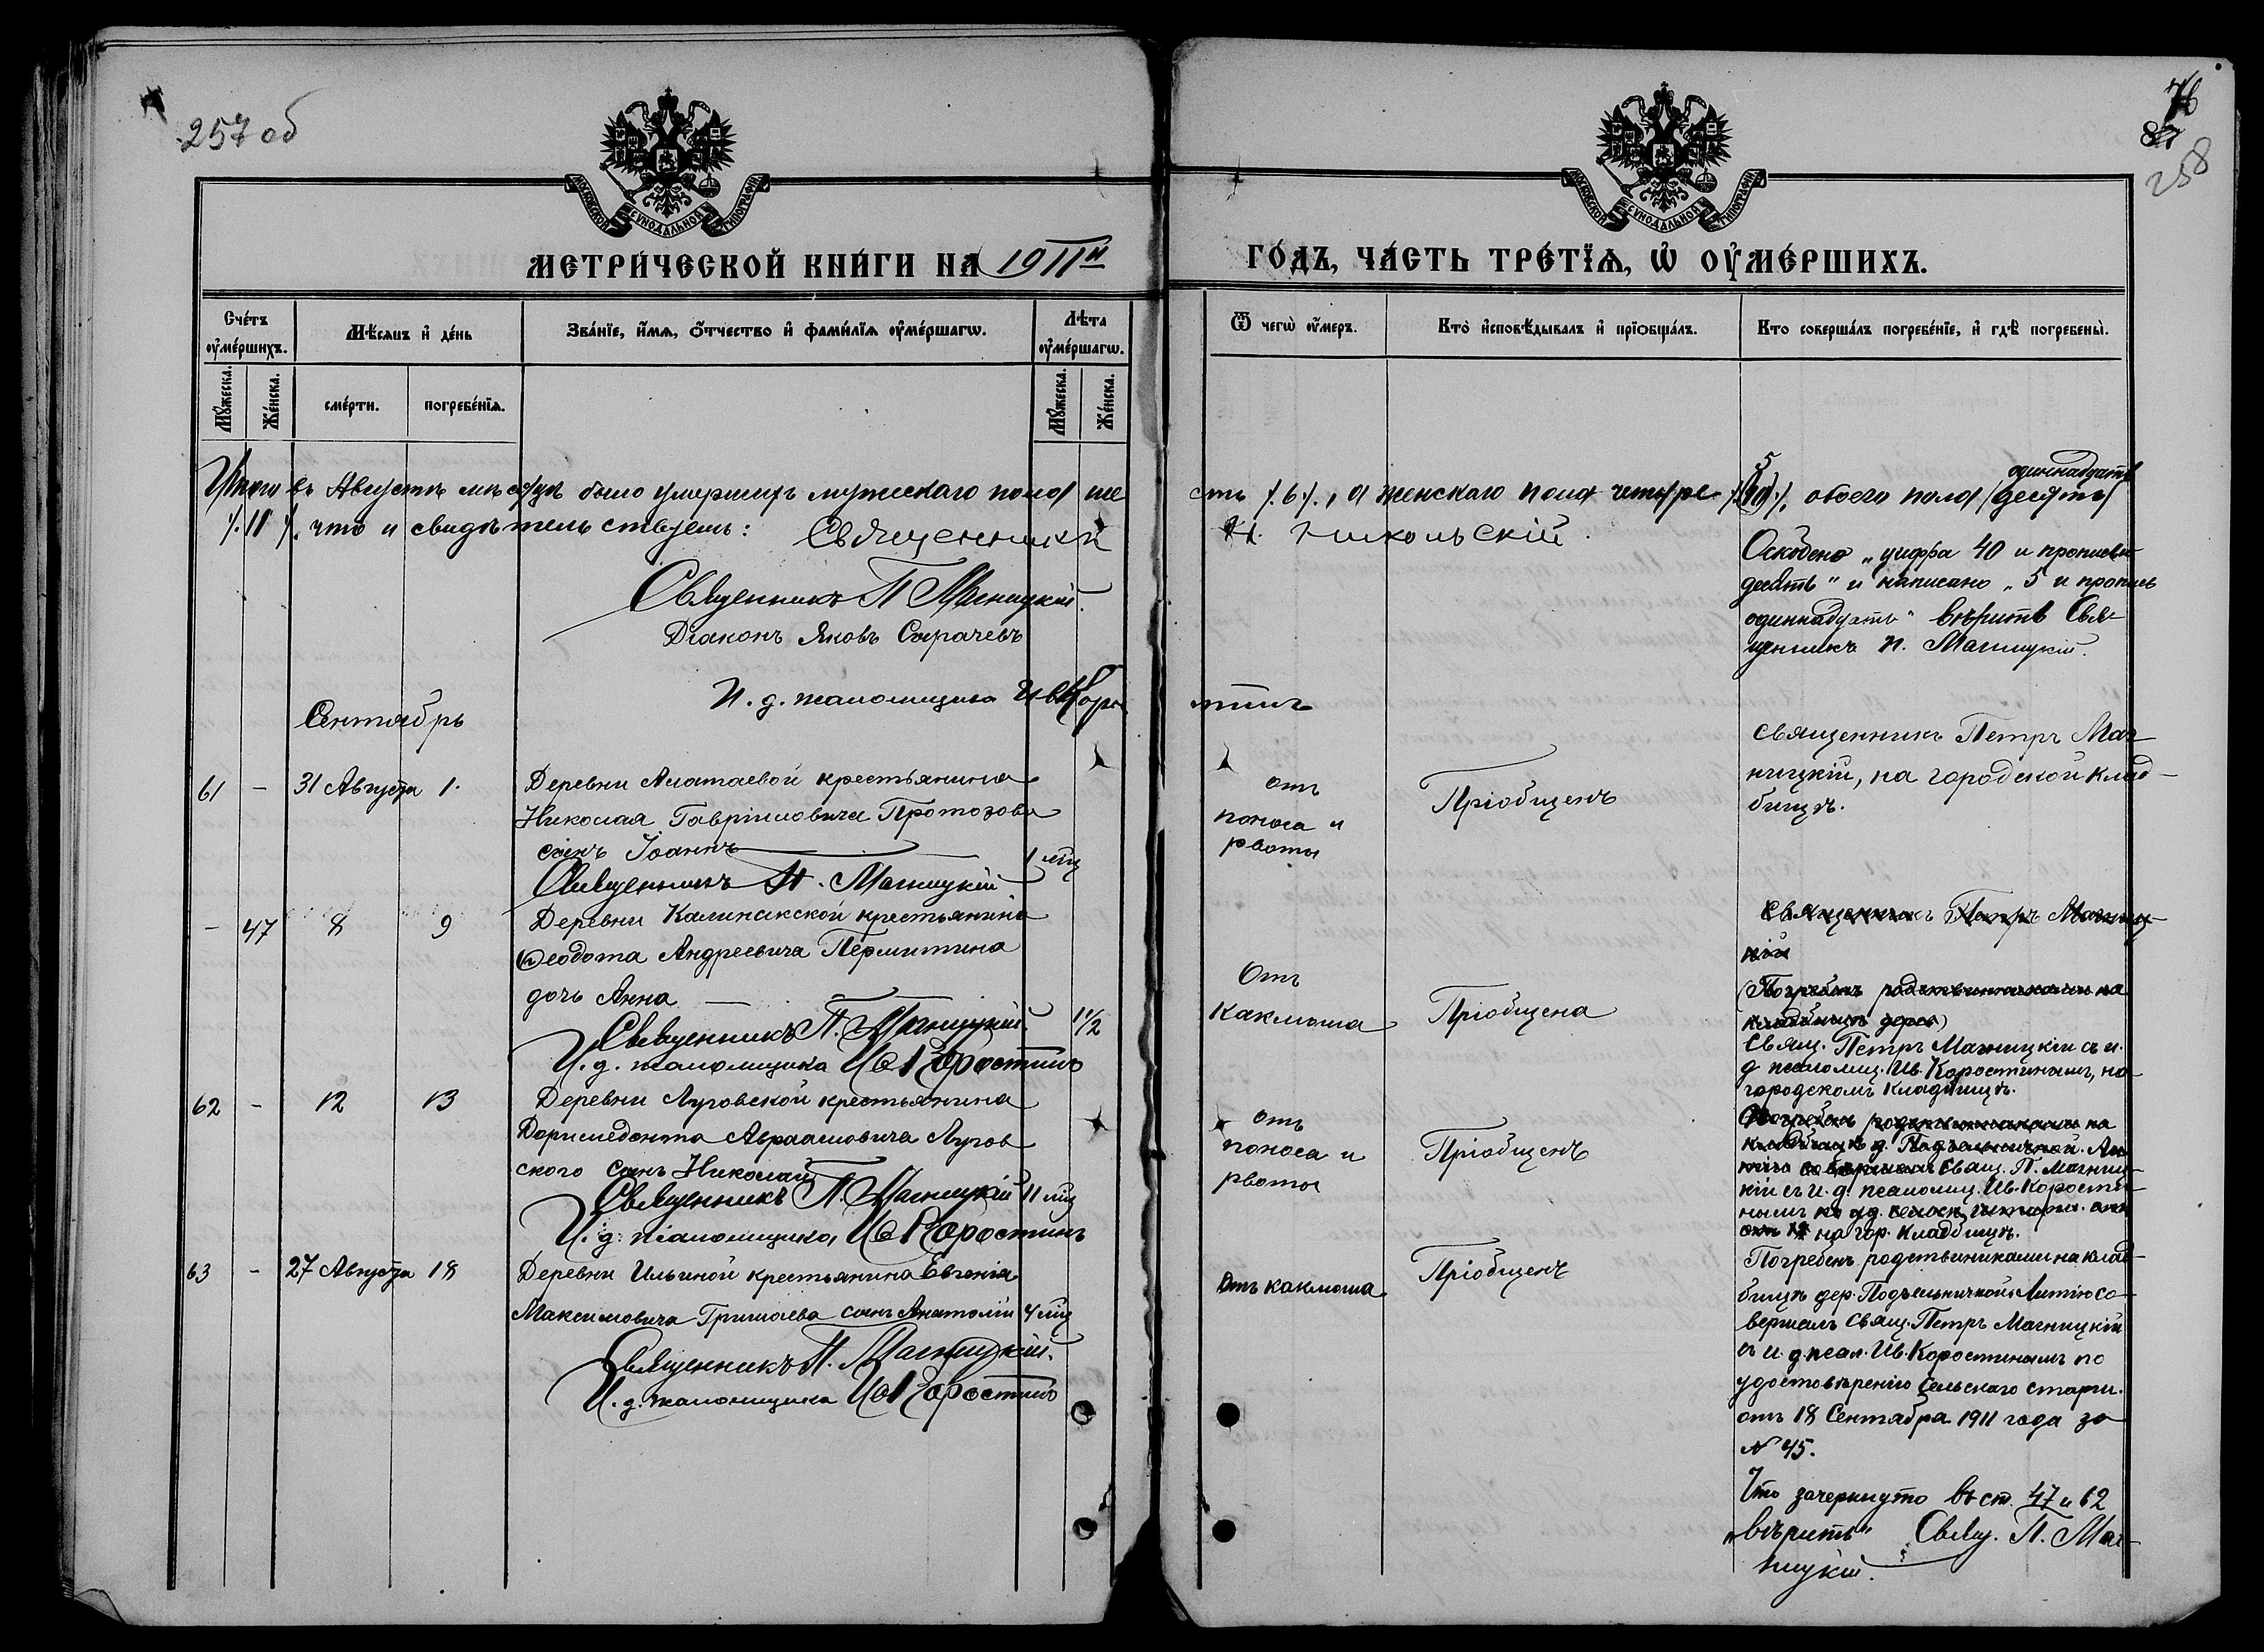 257 об
76
87
258
МОСКОВСКОЙ СУНОДАЛЬНОЙ ТИПОГРАФІИ
МОСКОВСКОЙ СУНОДАЛЬНОЙ ТИПОГРАФІИ
МЕТРИ́ЧЕСКОЙ КНИ́ГИ НА 1911й
ГО́ДЪ, ЧА́СТЬ ТРЕ́ТЇѦ, Ѡ҆ ОУ҆МЕ́РШИХЪ.
Сче́тъ оу҆ме́ршихъ.
Мꙋ́жеска.
Же́нска.
Мѣ́сѧцъ и҆ де́нь
сме́рти.
погребе́нїѧ.
Зва́нїе, и҆́мѧ, ѻ҆́тчество и҆ фами́лїѧ оу҆ме́ршагѡ.
Лѣ́та оу҆ме́ршагѡ.
Мꙋ́жеска.
Же́нска.
Ѿ чегѡ̀ оу҆́меръ.
Кто̀ и҆сповѣ́дывалъ и҆ прїѡбща́лъ.
Кто соверша́лъ погребе́нїе, и҆ гдѣ̀ погребены̀.
Итого въ Августѣ мѣсяцѣ было умершихъ мужескаго пола ше
сть /.6/., а женскаго пола четыре /.(10)/. 5 обоего пола (десять) одиннадцать
/.11/. что и свидѣтельствуемъ: Священникъ
Н. Никольскій.
Священникъ П Магницкій.
Діаконъ Яковъ Сырачевъ
И. д. псаломщика Ив Коро
стинъ
Оскоблено „цифра 10 и прописью
десять" и написано „5 и пропись
одиннадцать" вѣрить Свя-
щенникъ П. Магницкій.
Сентябрь
61 - 31 Августа 1.
Деревни Алатаевой крестьянина
Николая Гавріиловича Протозова
сынъ Іоаннъ
1 мц
Священникъ П. Магницкій
отъ
поноса и
рвоты
Пріобщенъ
священникъ Петръ Маг
ницкій, на городской клад-
бищѣ.
- 47 8 9
Деревни Калинакской крестьянина
Ѳеодота Андреевича Пермитина
дочь Анна
1 1/2
Священникъ П. Магницкій.
И. д. псаломщика Ив Коростинъ
Отъ
Какмоша
Пріобщена
священникъ Петръ Магниц-
кій
(Погребенъ родственниками на
кладбищѣ дерев)
Свящ. Петръ Магницкій съ и.
д псаломщ. Ив. Коростинымъ, на
городскомъ кладбищѣ.
62 - 12 13
Деревни Луговской крестьянина
Доримедонта Авраамовича Лугов
ского сынъ Николай
11 мц
Священникъ П. Магницкій
И. д. псаломщика, Ив Коростинъ
отъ
поноса и
рвоты
Пріобщенъ
Погребенъ родственниками на
кладбищѣ д. Подъельничной. Ли
Свящ. П. Магниц-
кій съ и. д. псаломщ. Ив. Корости-
нымъ
на гор. кладбищѣ.
63 - 27 Августа 18
Деревни Ильиной крестьянина Евгенія
Максимовича Гришаева сынъ Анатолій 4 мц
Священникъ П. Магницкій.
И. д. псаломщика Ив Коростинъ
Отъ какмоша
Пріобщенъ
Погребенъ родственниками на клад-
бищѣ дер. Подъельничной. Литію со-
вершалъ Свящ. Петръ Магницкій
съ и. д псал. Ив. Коростинымъ по
удостовѣренію сельскаго старш.
отъ 18 Сентября 1911 года за
№ 45.
Что зачеркнуто въ ст. 47 и 62
„вѣрить" Свящ. П. Маг-
ницкій.